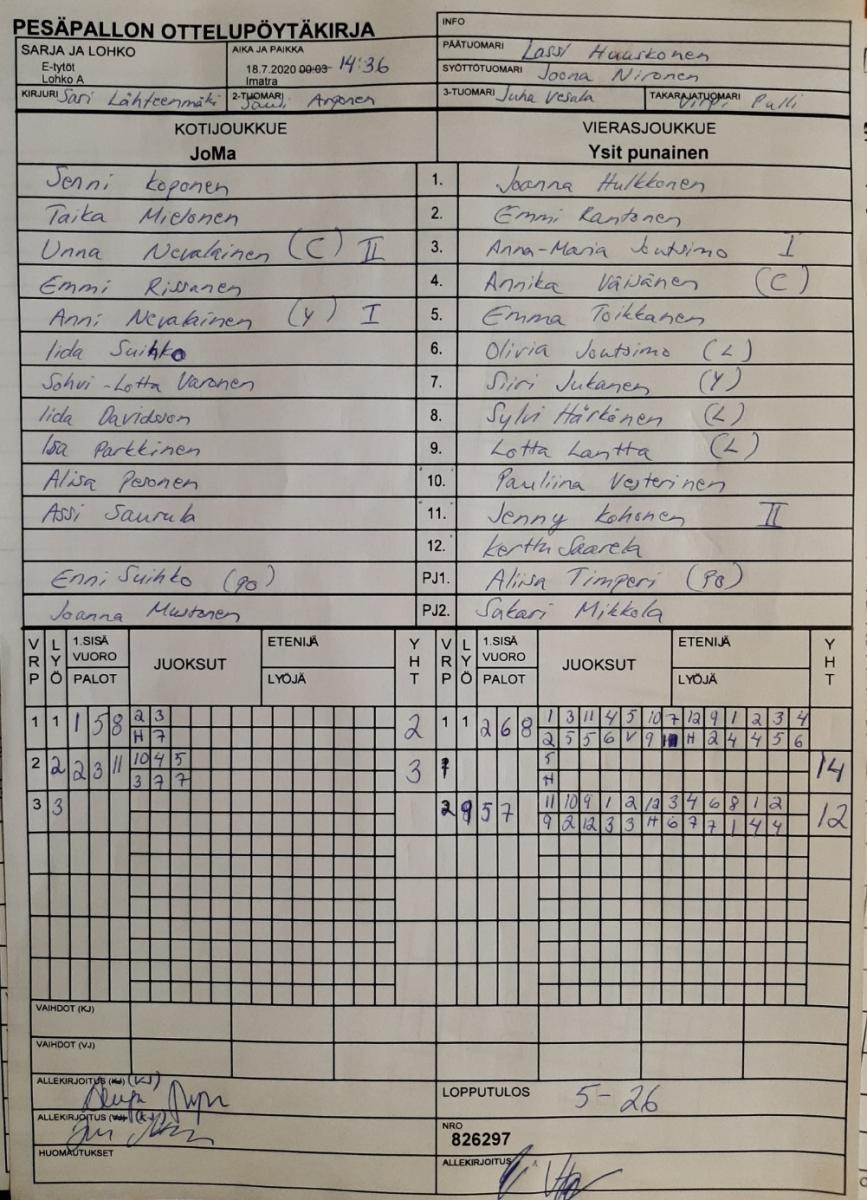 PESÄPALLON OTTELUPÖYTÄKIRJA
INFO
SARJA JA LOHKO
E-tytöt
Lohko A
AIKA JA PAIKKA
18.7.2020 00:03 14:36
Imatra
PÄÄTUOMARI Lassi Huuskonen
SYÖTTÖTUOMARI Joona Nironen
KIRJURI Sari Lähteenmäki
2-TUOMARI Sauli Argonen
3-TUOMARI Juha Vesala
TAKARAJATUOMARI Virpi Pulli
KOTIJOUKKUE
JoMa
VIERASJOUKKUE
Ysit punainen
Senni Koponen 1. Joanna Hulkkonen
Taika Mielonen 2. Emmi Rantonen
Unna Nevalainen (C) II 3. Anna-Maria Joutsimo I
Emmi Rissanen 4. Annika Väisänen (C)
Anni Nevalainen (Y) I 5. Emma Toikkanen
Iida Suihko 6. Olivia Joutsimo (L)
Sohvi-Lotta Varonen 7. Siiri Jukanen (Y)
Iida Davidsson 8. Sylvi Härkönen (L)
Isa Parkkinen 9. Lotta Lantta (L)
Alisa Pesonen 10. Pauliina Vesterinen
Assi Saurula 11. Jenny Kohonen II
12. Kerttu Saarela
Enni Suihko (po) PJ1. Aliisa Timperi (po)
Joanna Mustonen PJ2. Sakari Mikkola
VRP LYÖ 1.SISÄ VUORO PALOT JUOKSUT ETENIJÄ LYÖJÄ YHT VRP LYÖ 1.SISÄ VUORO PALOT JUOKSUT ETENIJÄ LYÖJÄ YHT
1 1 1 5 8 2 3 2 1 1 2 6 8 1 3 11 4 5 10 7 12 9 1 2 3 4
H 7 2 5 5 6 V 9 H 2 4 4 5 6
2 2 2 3 11 10 4 5 3 5 14
3 7 7 H
3 3 2 9 5 7 11 10 9 1 2 12 3 4 6 8 1 2 12
9 2 12 3 3 H 6 7 7 1 4 4
VAIHDOT (KJ)
VAIHDOT (VJ)
ALLEKIRJOITUS (VJ)
LOPPUTULOS 5-26
ALLEKIRJOITUS (KJ)
NRO
826297
HUOMAUTUKSET
ALLEKIRJOITUS